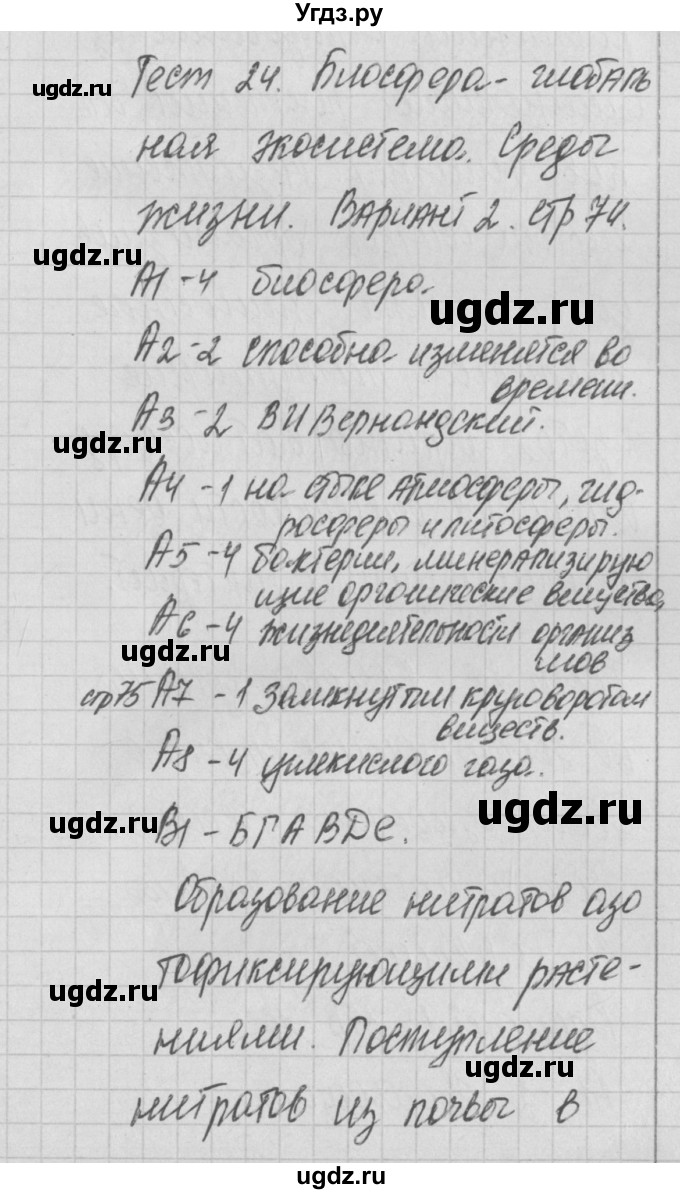 Угдз.ру
Тест 24. Биосфера - глобаль
ugdz.ru
ugdz.ru
ная экосистема. Среды
жизни. Вариант 2. стр 74.
ugdz.ru
А1 - 4 биосфера.
ugdz.ru
А2 - 2 способна изменятся во
времени.
А3 - 2 ВИ Вернандский.
ugdz.ru
А4 - 1 на стыке атмосферы, гид-
росферы и литосферы.
А5 - 4 бактерии, минерализирую
щие органические вещества,
ugdz.ru
А6 - 4 жизнедеятельности организ
мов
стр 75 А7 - 1 замкнутым круговоротом
веществ.
А8 - 4 углекислого газа.
ugdz.ru
ugdz.ru
В1 - БГАВДС.
Образование нитратов азо
тофиксирующими расте-
ugdz.ru
ниями. Поступление
ugdz.ru
нитратов из почвы в
ugdz.ru